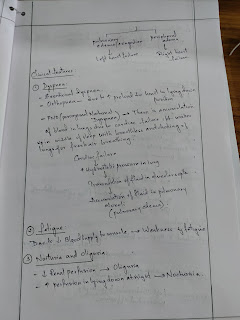 pulmonary peripheral
edema/congestion edema
↓ ↓
Left heart failure Right heart
failure
Clinical features
① Dyspnea
- Exertional dyspnea
- Orthopnea - due to ↑ preload in heart in lying down
position
- PND (paroxysmal nocturnal dyspnea) → There is accumulation
of blood in lungs due to cardiac failure. Pt wakes
up of deep with breathless and
for breathing.
Cardiac failure
↓
↑ Hydrostatic pressure in lung
↓
Transudation of fluid in
↓
Accumulation of fluid in pulmonary
alveoli
(pulmonary edema).
② Fatigue
Due to ↓ Blood supply to muscle → Weakness & fatigue
③ Nocturia and oliguria
- ↓ Renal perfusion → Oliguria
- ↑ perfusion in lying down at night → Nocturia.